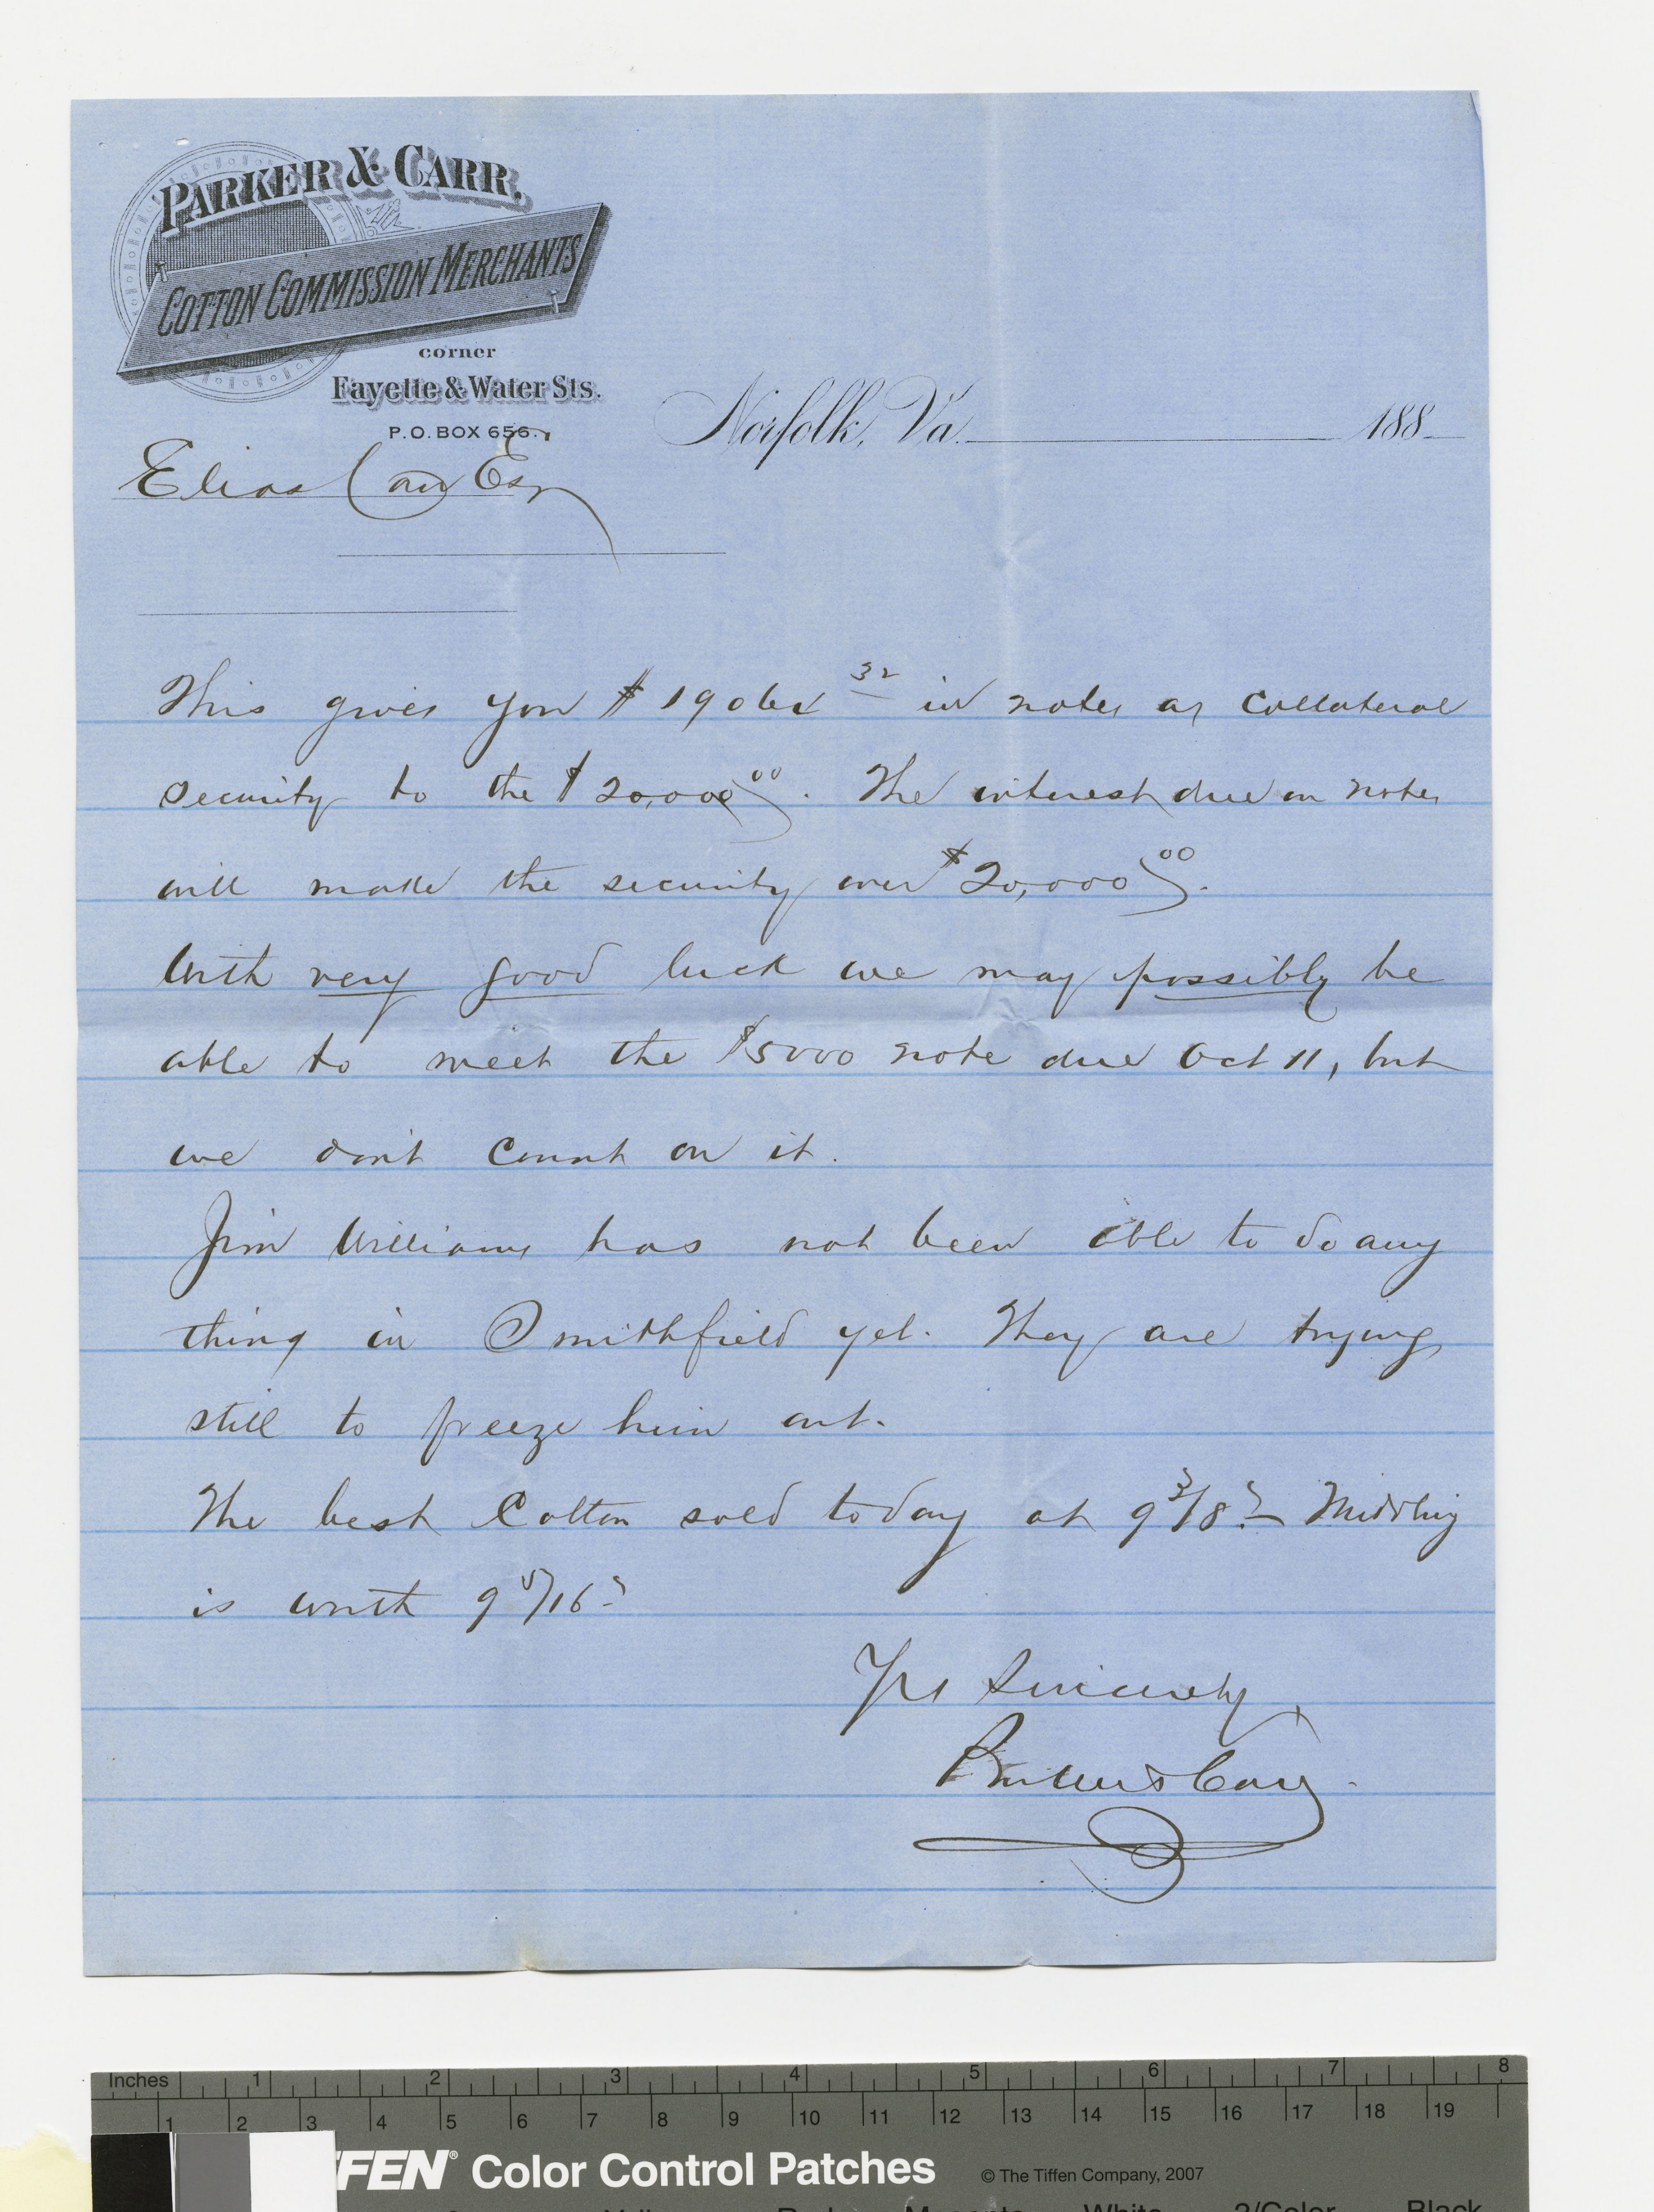 PARKER & CARR.
COTTON COMMISSION MERCHANTS
corner
Fayette & Water Sts.
P.O. BOX 656.
Norfolk, Va. 188
Elias Carr Esq
This gives you $ 32 in notes as Collateral
security to the $20,000 00. The interest due on notes
will make the security over $20,000 00.
With very good luck we may possibly be
able to meet the $5000 note due Oct 11, but
we don't count on it.
Jim Williams has not been able to do any
thing in Smithfield yet. They are trying
still to freeze him out.
The best Cotton sold today at 9 3/8 Middling
is worth 9 5/16
Yrs Sincerely
Parker & Carr.
Inches 1 2 3 4 5 6 7 8
1 2 3 4 5 6 7 8 9 10 11 12 13 14 15 16 17 18 19
FFEN® Color Control Patches © The Tiffen Company, 2007
Magenta White 3/Color Black